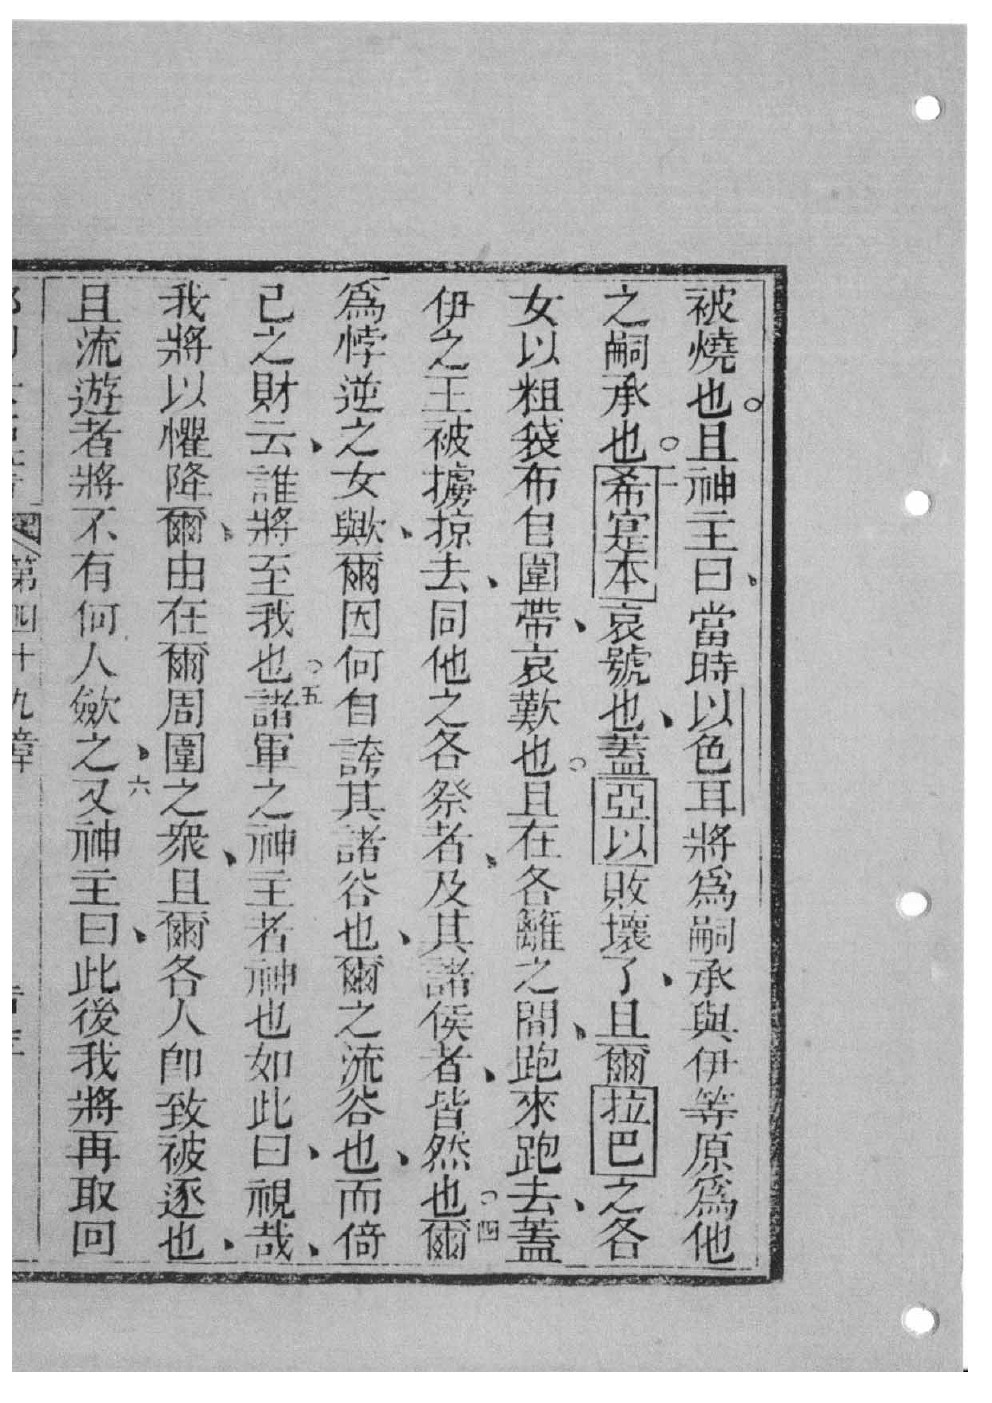 被燒也。且神主曰、當時以色耳將爲嗣承與伊等原爲他
之嗣承也。三希寔本哀號也、蓋亞以敗壞了、且爾拉巴之各
女以粗袋布自圍帶、哀歎也。且在各籬之間、跑來跑去、蓋
伊之王被擄掠去、同他之各祭者、及其諸侯者、皆然也。四爾
爲悖逆之女歟、爾因何自誇其諸谷也、爾之流谷也、而倚
己之財云、誰將至我也。五諸軍之神主者神也如此曰、視哉、
我將以懼降爾、由在爾周圍之衆、且爾各人卽致被逐也、
且流遊者將不有何人歛之、六又神主曰、此後我將再取回
第四十九章